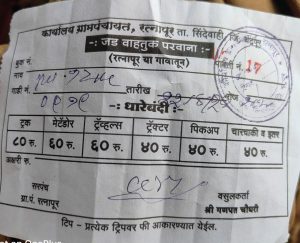 कार्यालय ग्रामपंचायत, रत्नापूर ता. सिंदेवाही जि. चंद्रपूर
-: जड वाहतुक परवाना :-
बुक नं. (रत्नापूर या गावातून) पावती नं. 17
गाडी नं. तारीख
-: धारेबंदी :-
ट्रक मेटॅडोर ट्रॅव्हल्स ट्रॅक्टर पिकअप चारचाकी व इतर
८० रु. ६० रु. ६० रु. ४० रु. ४० रु. ४० रु.
अक्षरी रु.
सरपंच वसुलकर्ता
ग्रा.पं. रत्नापूर श्री गणपत चौधरी
टिप - प्रत्येक ट्रिपवर ही आकारण्यात येईल.